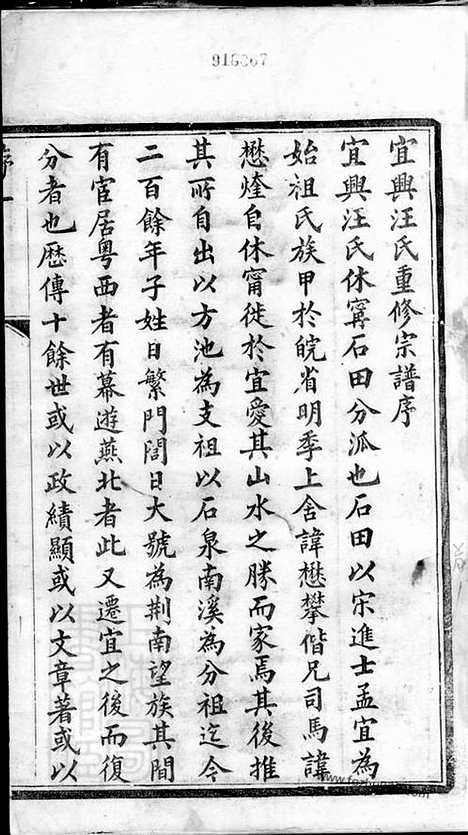 916867
宜興汪氏重修宗譜序
宜興汪氏休寗石田分派也石田以宋進士孟宜為
始祖氏族甲於皖省明季上舍諱懋攀偕兄司馬諱
懋煃自休甯徙於宜愛其山水之勝而家焉其後推
其所自出以方池為支祖以石泉南溪為分祖迄今
二百餘年子姓日繁門閭日大號為荆南望族其間
有宦居粵西者有幕遊燕北者此又遷宜之後而復
分者也歷傳十餘世或以政績顯或以文章著或以
序 一